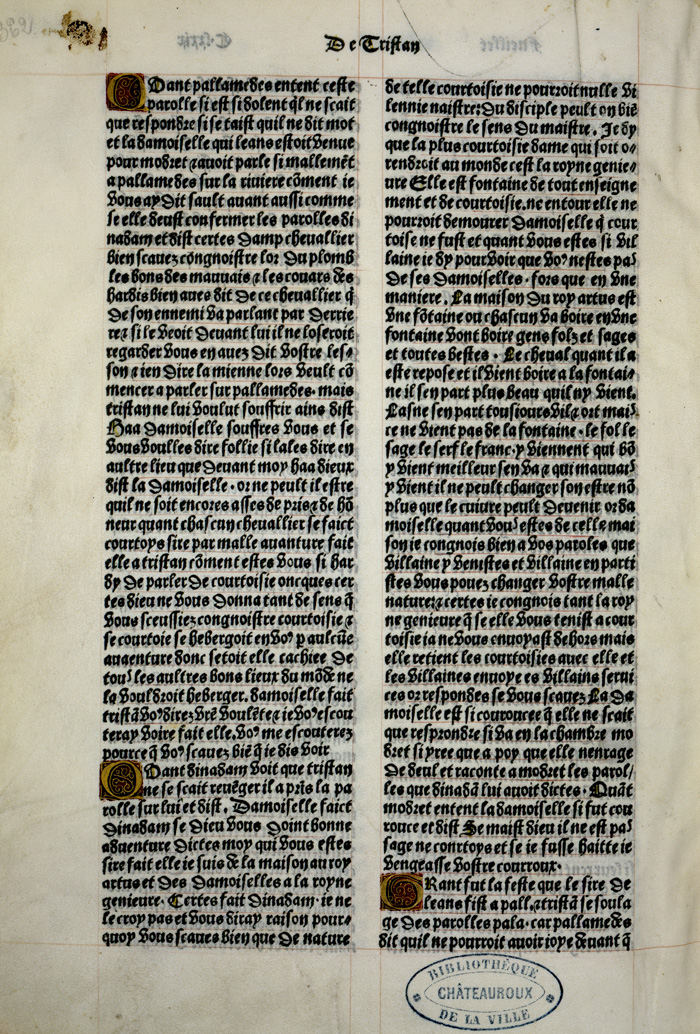 De Tristan
Quant pallamedes entent ceste
parolle si est si dolent q̃l ne scait
que respondre si se taist quil ne dit mot
et la damoiselle qui leans estoit venue
pour modret ⁊ auoit parle si mallemẽt
a pallamedes sur la riuiere cõment ie
vous ay dit sault auant aussi comme
se elle deust confermer les parolles di
nadam et dist certes Damp cheuallier
bien scauez congnoistre lor du plomb
les bons des mauuais ⁊ les couars des
hardis bien aues dit de ce cheuallier q̃
de son ennemi va parlant par derrie
re ⁊ si le veoit deuant lui il ne loseroit
regarder vous en auez dit vostre les⸗
son ⁊ ien dire la mienne lors veult cõ
mencer a parler sur pallamedes. mais
tristan ne lui voulut souffrir ains dist
Haa damoiselle souffres vous et se
vous voulles dire follie si lales dire en
aultre lieu que deuant moy haa dieux
dist la damoiselle. or ne peult il estre
quil ne soit encores asses de pris ⁊ de hõ
neur quant chascun cheuallier se faict
courtoys sire par malle auanture fait
elle a tristan cõment estes vous si har
dy de parler de courtoisie oncques cer
tes dieu ne vous donna tant de sens q̃
vous sceussiez congnoistre courtoisie ⁊
se courtoie se hebergoit en voꝰ p aulcũe
auaenture donc setoit elle cachiee de
touˢ les aultres bons lieux du mõde ne
la vouldroit heberger. damoiselle fait
tristã voꝰ direz vr̃e voulẽte ⁊ ie voꝰ escou
teray voire fait elle. voꝰ me escouterez
pource q̃ voꝰ scauez biẽ q̃ ie dis voir
Quant dinadam voit que tristan
ne se scait reuẽger il a pris la pa
rolle sur lui et dist. Damoiselle faict
Dinadam se Dieu vous doint bonne
aduenture Dictes moy qui vous estes
sire fait elle ie suis de la maison au roy
artus et des Damoiselles a la royne
genieure. Certes fait Dinadam. ie ne
le croy pas et vous diray raison pour⸗
quoy vous scaues bien que de nature
de telle courtoisie ne pourroit nulle vi
lennie naistre: Du disciple peult on biẽ
congnoistre le sens du maistre. Je dy
que la plus courtoisie dame qui soit o⸗
rendroit au monde cest la royne genie⸗
ure Elle est fontaine de tout enseigne
ment et de courtoisie. ne entour elle ne
pourroit demourer Damoiselle q̃ cour
toise ne fust et quant vous estes si vil
laine ie dy pour voir que voꝰ nestes paˢ
de ses damoiselles. fors que en vne
maniere. La maison du roy artus est
vne fõtaine ou chascun va boire en vne
fontaine vont boire gens folz et sages
et toutes bestes. Le cheual quant il a
este repose et il vient boire a la fontai⸗
ne il sen part plus beau quil ny vient.
Lasne sen part tousiours vil ⁊ ort maiˢ
ce ne vient pas de la fontaine. le fol le
sage le serf le franc. y viennent qui bõ
y vient meilleur sen va ⁊ qui mauuaiˢ
y vient il ne peult changer son estre nõ
plus que le cuiure peult deuenir or da
moiselle quant vouˢ estes de celle mai
son ie congnois bien a vos paroles que
villaine y venistes et villaine en parti
stes vous pouez changer vostre malle
nature: ⁊ certes ie congnois tant la roy
ne genieure q̃ se elle vous tenist a cour
toisie ia ne vous enuoyast dehors mais
elle retient les courtoisies auec elle et
les villaines enuoye es villains serui
ces or respondes se vous scauez La da
moiselle est si couroucee q̃ elle ne scait
que resprondre si va en la chambre mo
dret si yree que a poy que elle nenrage
de deul et raconte a modret les parol/
les que dinadã lui auoit dictes. Quãt
modret entent la damoiselle si fut cou
rouce et dist Se maist dieu il ne est paˢ
sage ne courtoys et se ie fusse haitte ie
vengeasse vostre courroux.
Grant fut la feste que le sire de
leans fist a pall. ⁊ tristã se soula
ge des parolles pala. car pallamedes
dit quil ne pourroit auoir ioye deuant q̃
BIBLIOTHÈQUE
CHÂTEAUROUX
DE LA VILLE